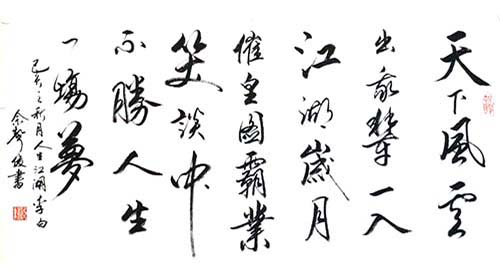 天下風雲
出我輩一入
江湖歲月
催皇圖霸業
笑談中
不勝人生
一場夢
己亥之秋月人生江湖
書